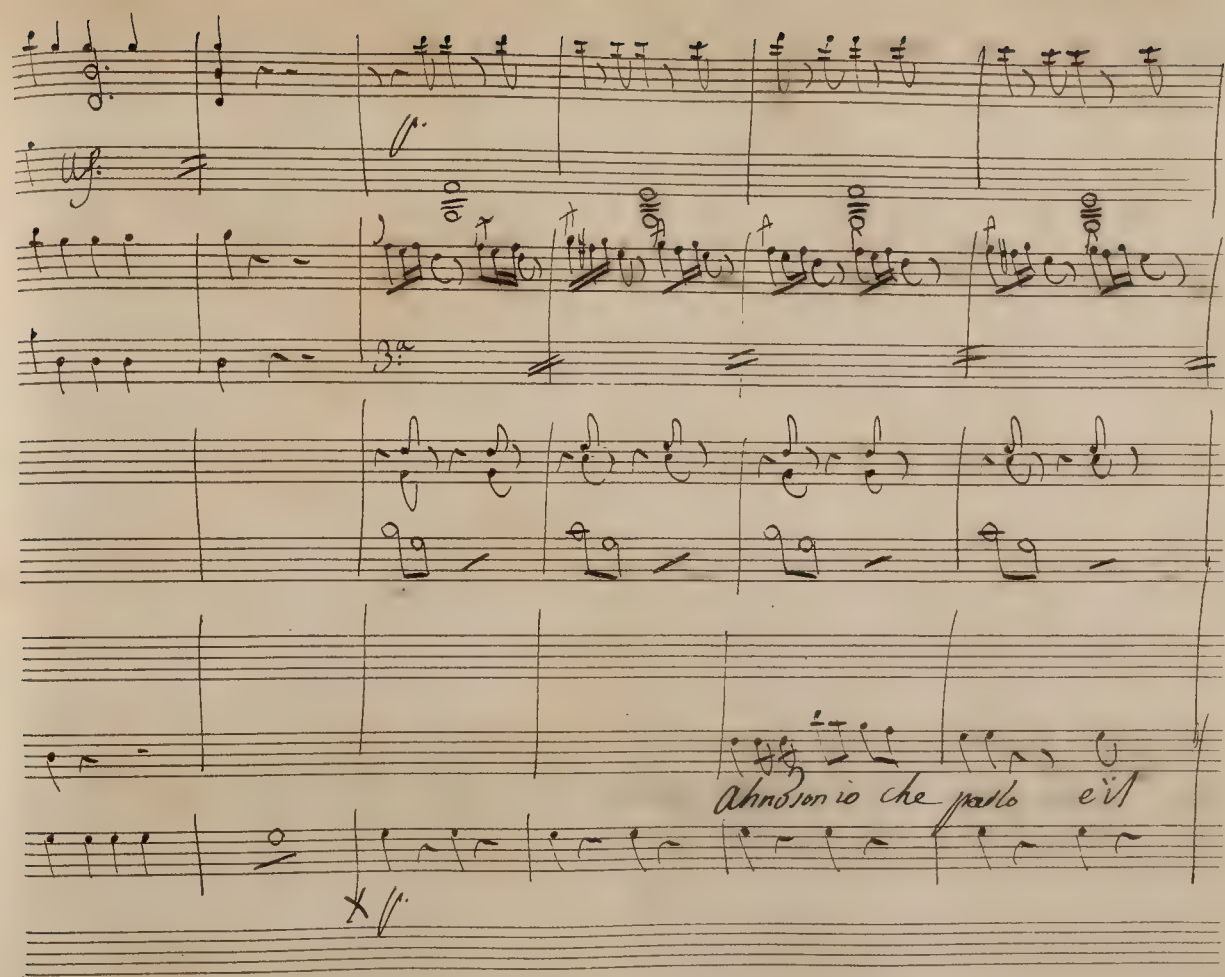 p.
Uſ:
3.ª
Ahnō son io che parlo e'il
p.